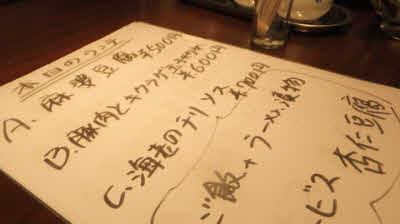 本日のランチ
A. 麻婆豆腐 ¥500円
B. 豚肉とキクラゲ ¥600円
C. 海老のチリソース ¥700円
ご飯+ラーメン+漬物
ビス 杏仁豆腐